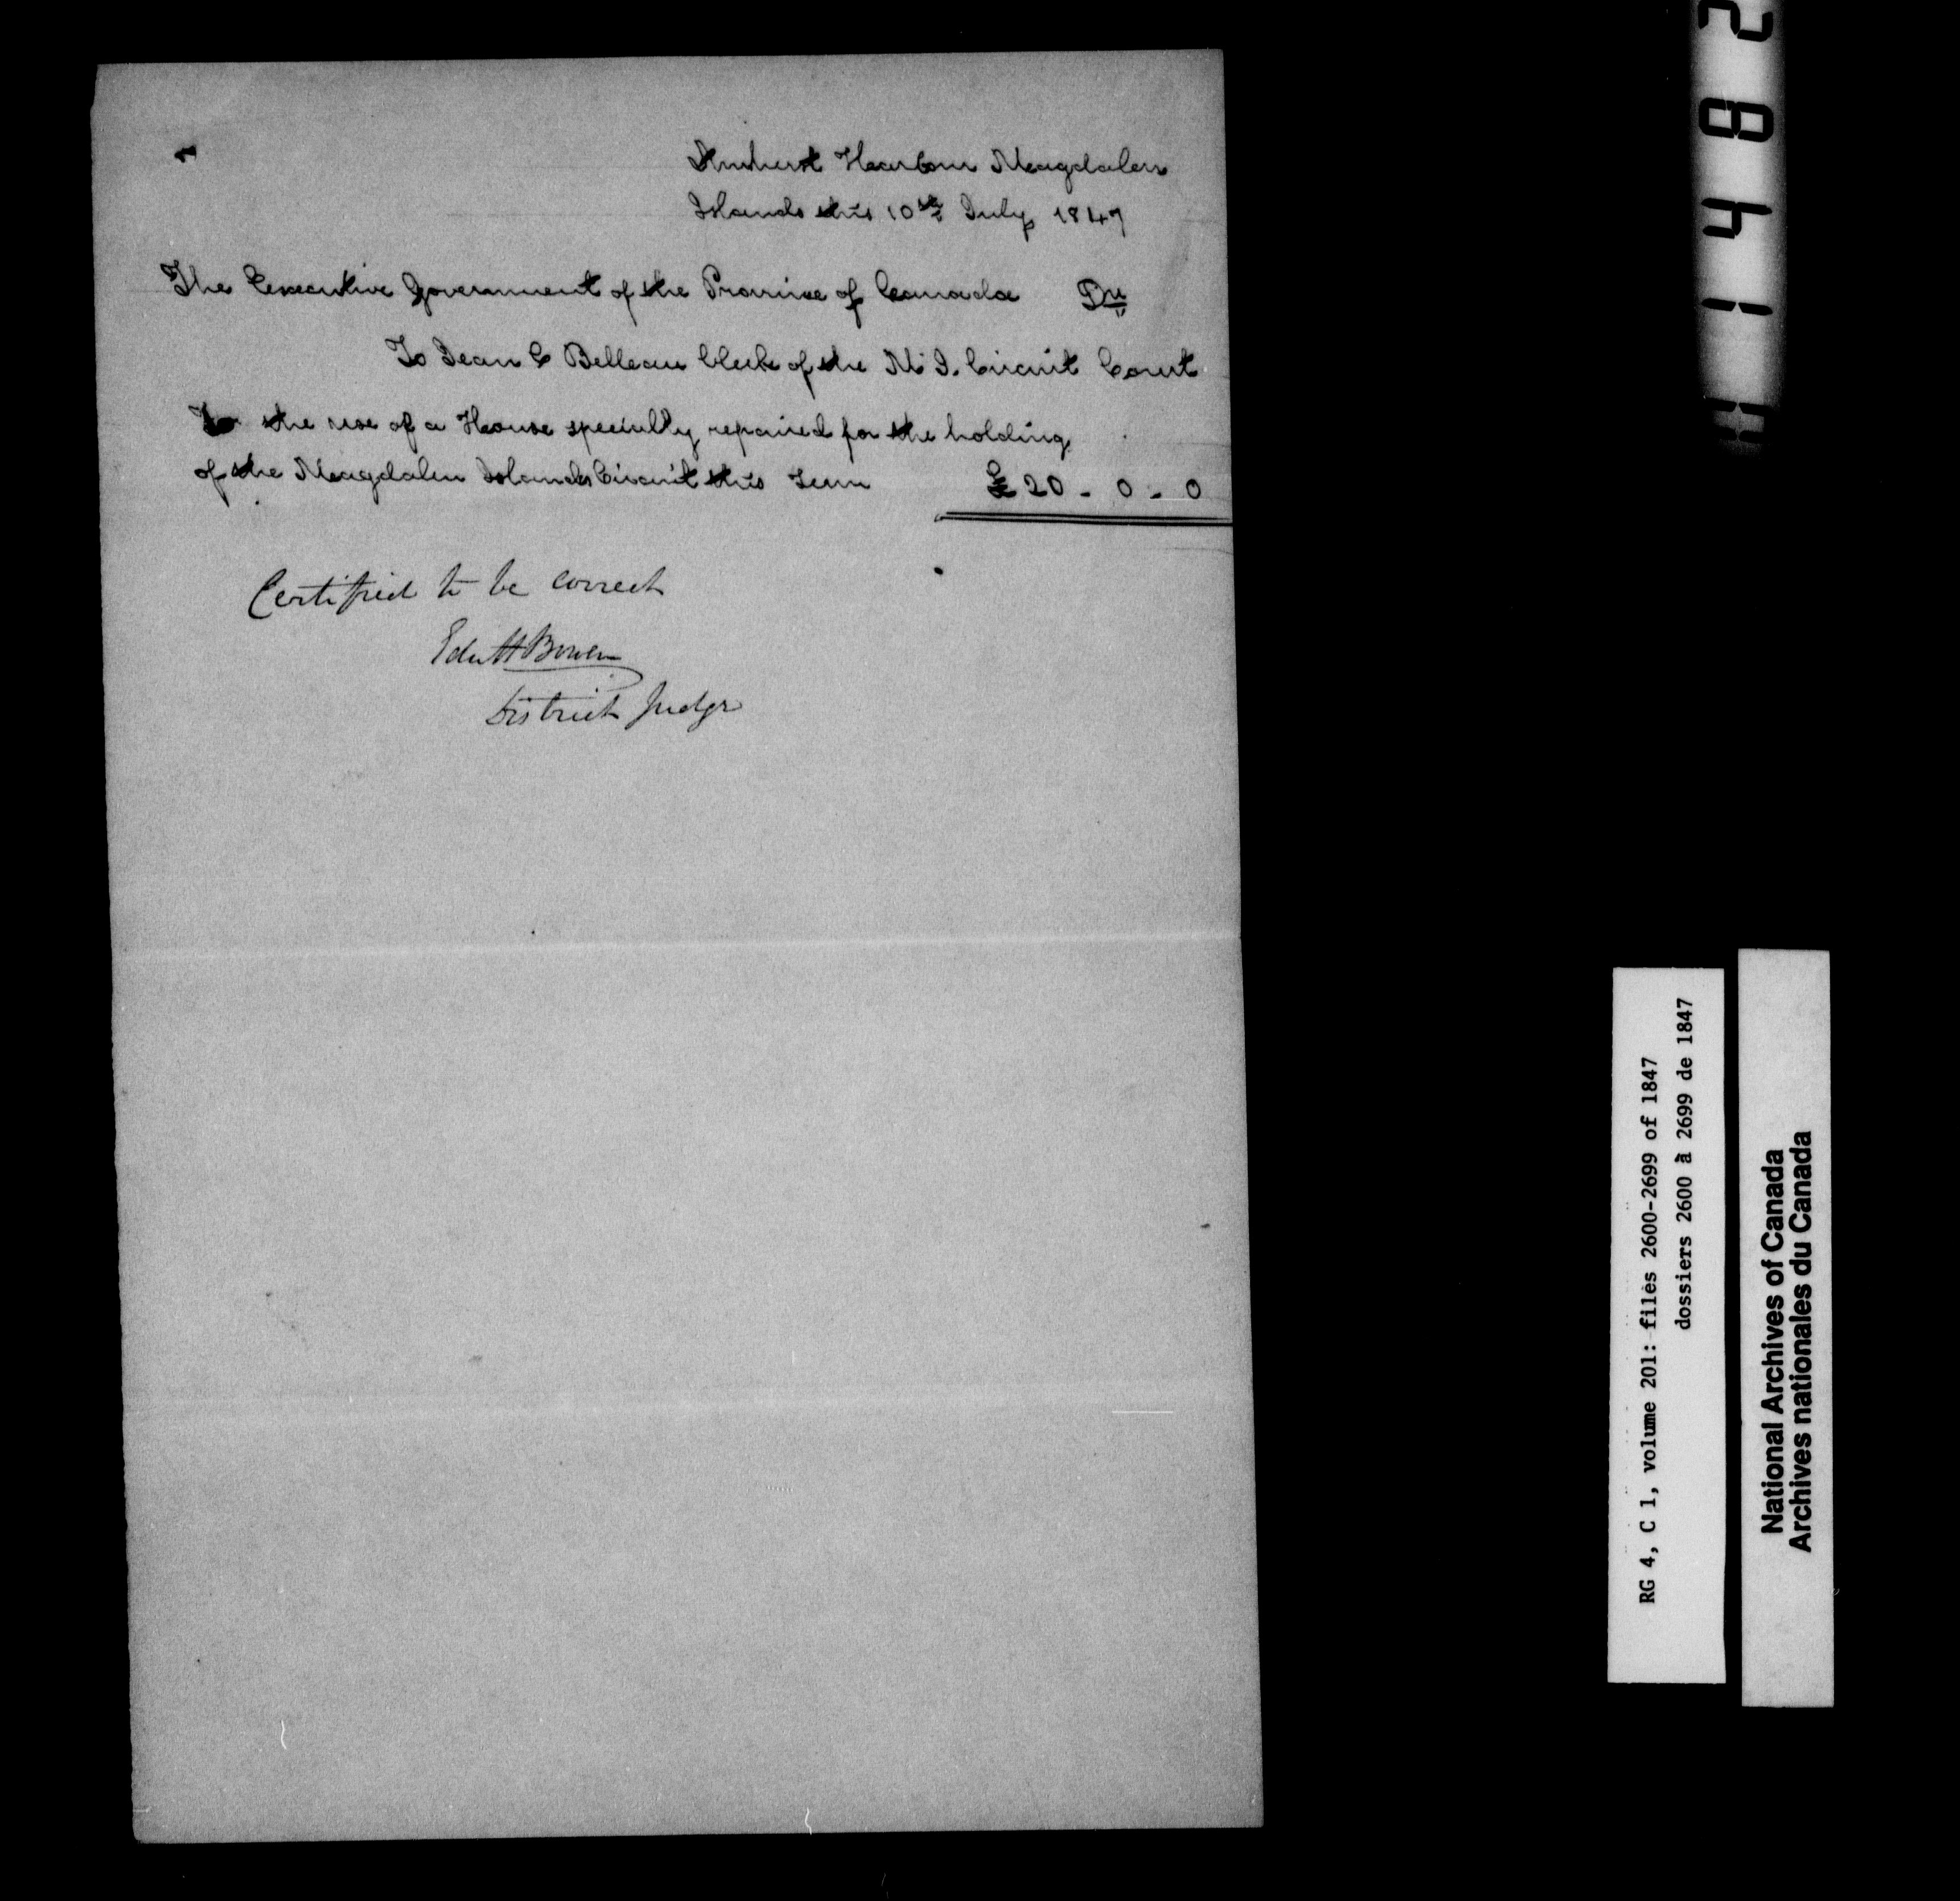 1
Amherst Harbour Magdalen
Islands this 10th July 1847
The Executive Government of the Province of Canada Dr
To Jean C Belleau Clerk of the M I. Circuit Court
For the use of a House specially repaired for the holding
of the Magdalen Islands Circuit this Term £20 - 0 - 0
Certified to be correct
Edw H Bowen
District Judge
RG 4, C 1, volume 201: files 2600-2699 of 1847
dossiers 2600 à 2699 de 1847
National Archives of Canada
Archives nationales du Canada